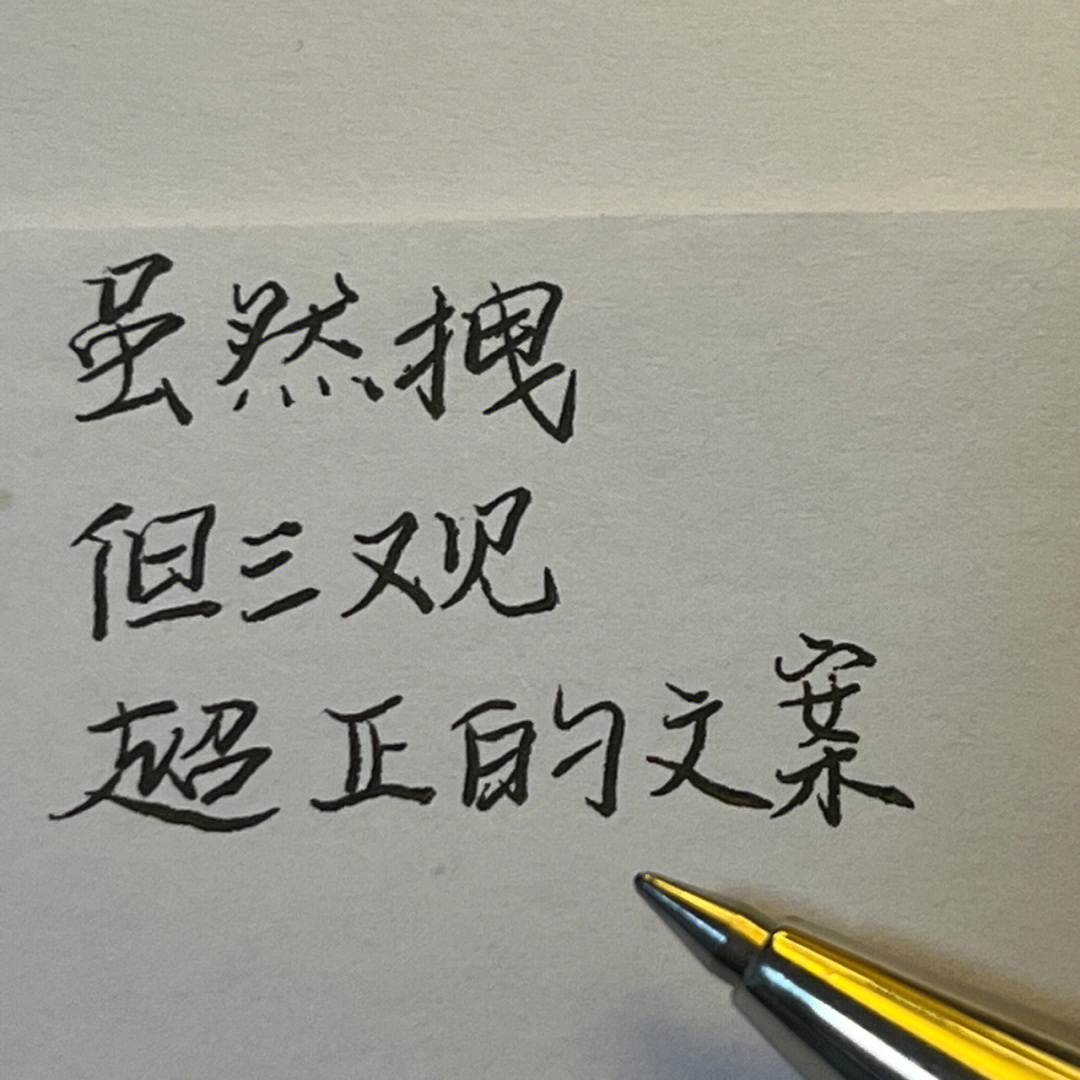 虽然拽
但三观
超正的文案